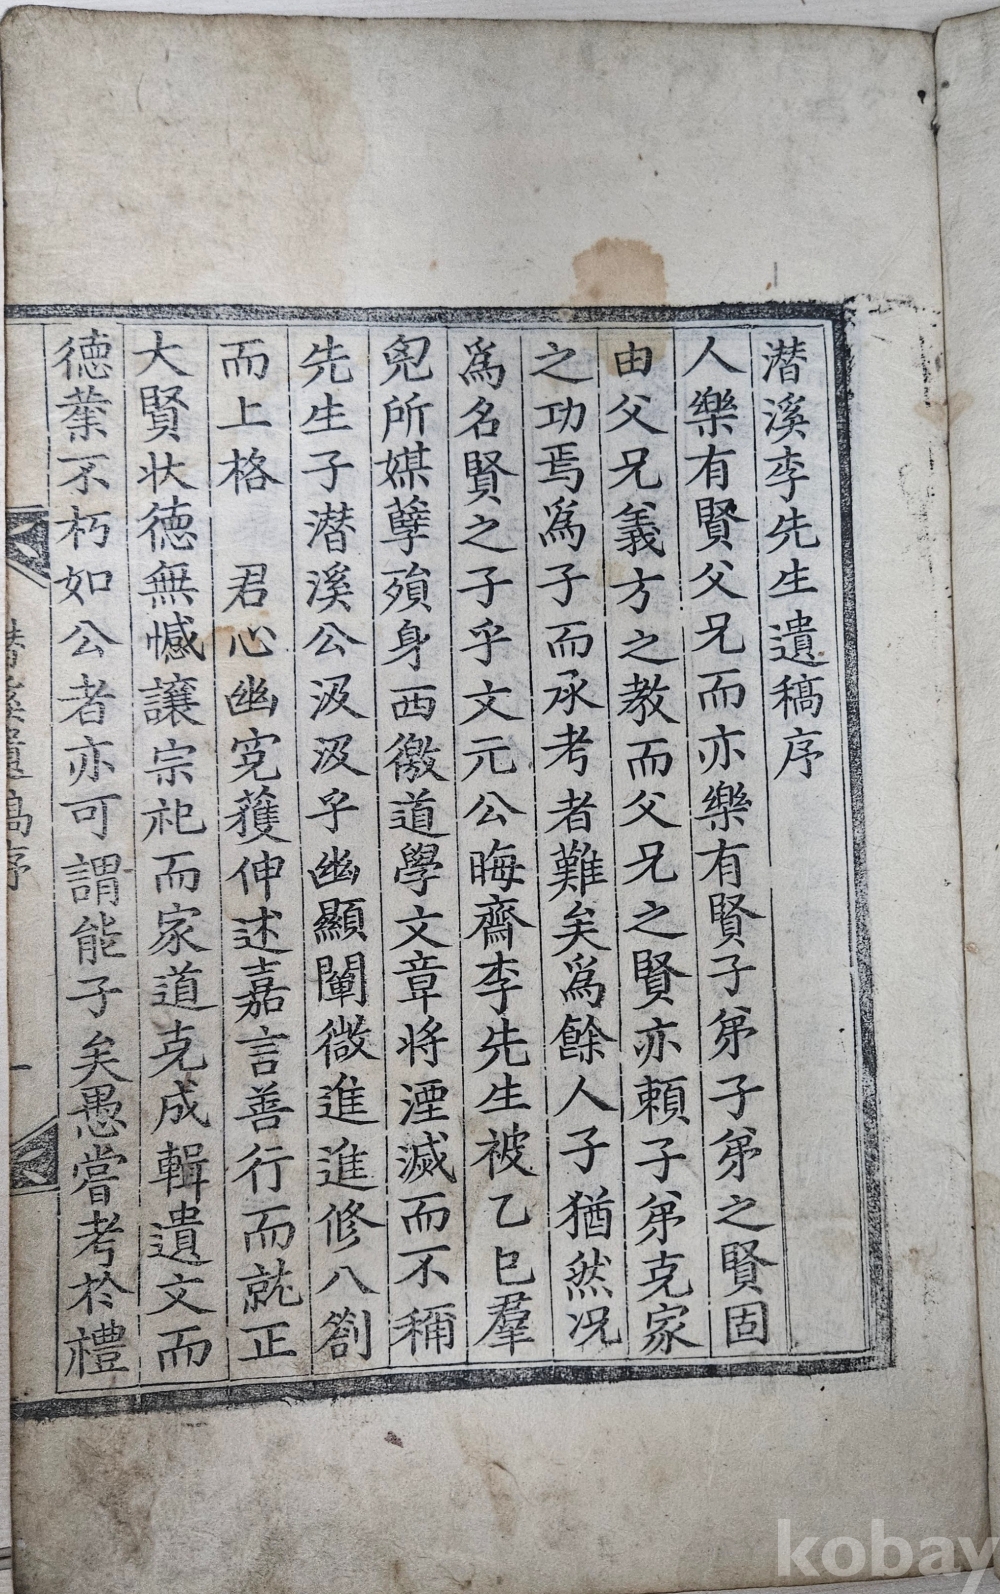 潜溪李先生遺稿序
人樂有賢父兄而亦樂有賢子弟子弟之賢固
由父兄義方之教而父兄之賢亦賴子弟克家
之功焉爲子而承考者難矣爲餘人子猶然况
爲名賢之子乎文元公晦齋李先生被乙巳羣
兇所媒孽殞身西徼道學文章将湮滅而不稱
先生子潜溪公汲汲乎幽顯闡微進進修八劄
而上格 君心幽寃獲伸述嘉言善行而就正
大賢状德無憾讓宗祀而家道克成輯遺文而
德業不朽如公者亦可謂能子矣愚嘗考於禮
潜溪遺稿序
一
kobay